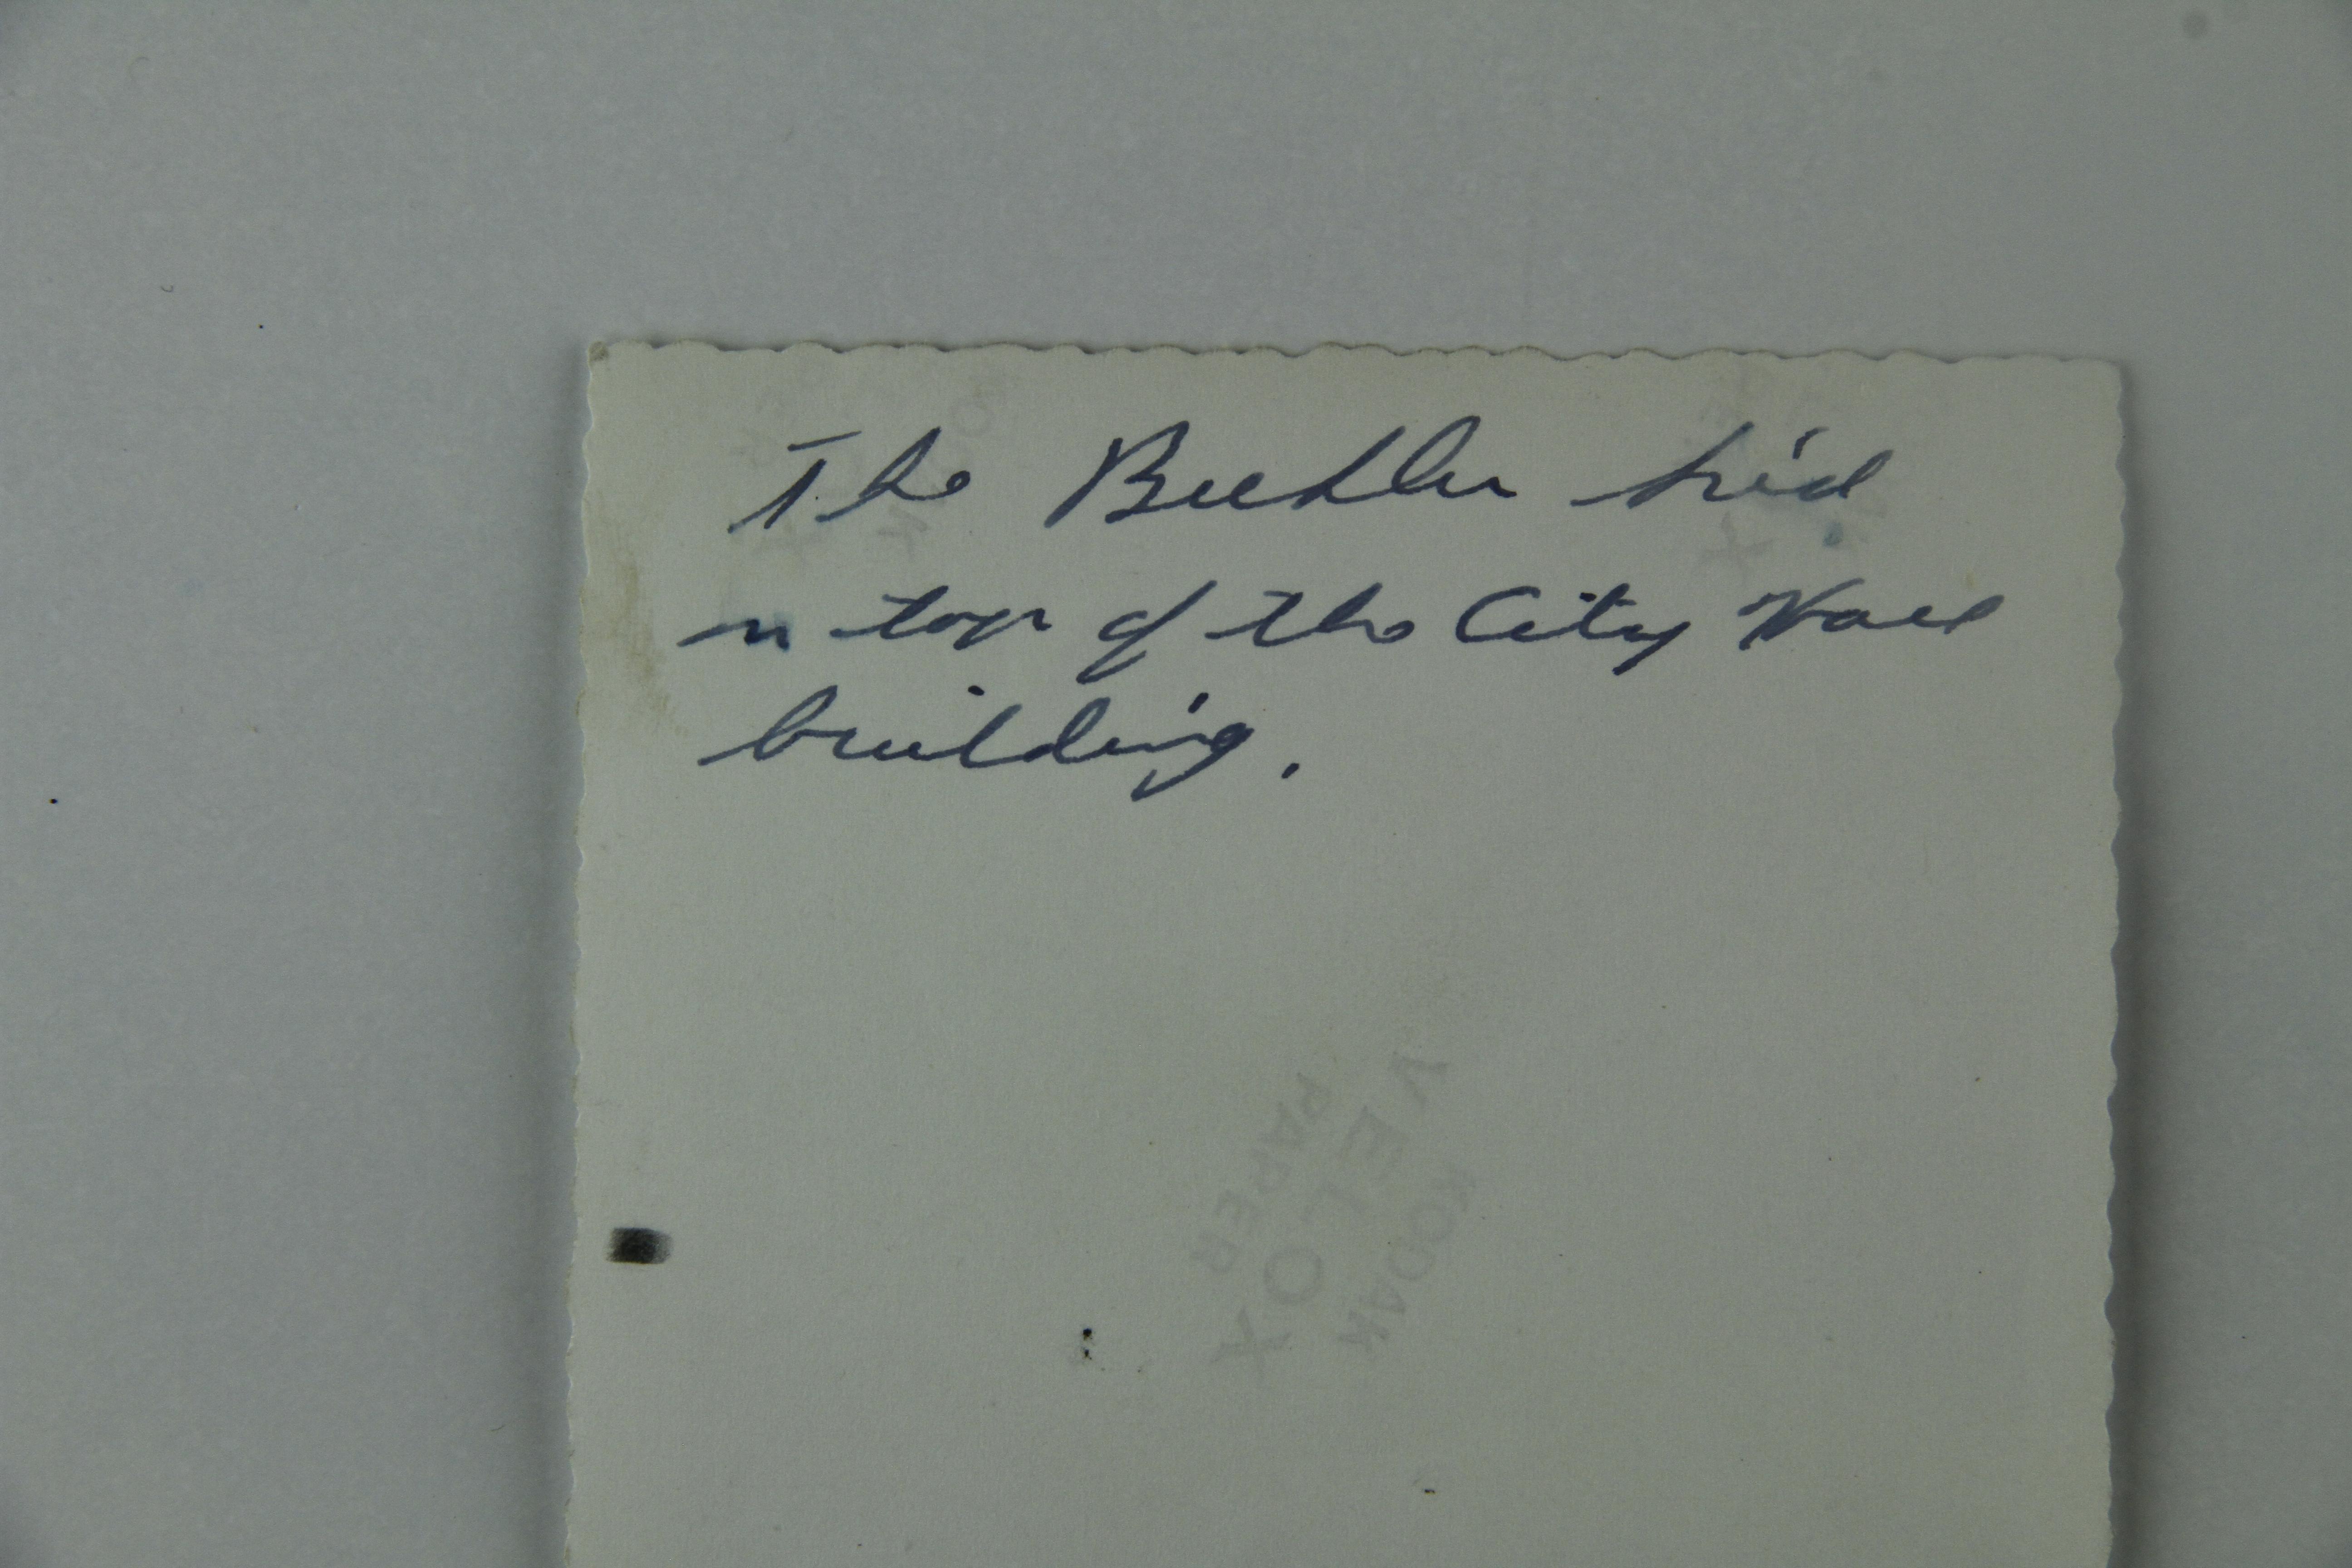 The Buehler kid
on top of the City Hall
building.
VELOX
KODAK
PAPER